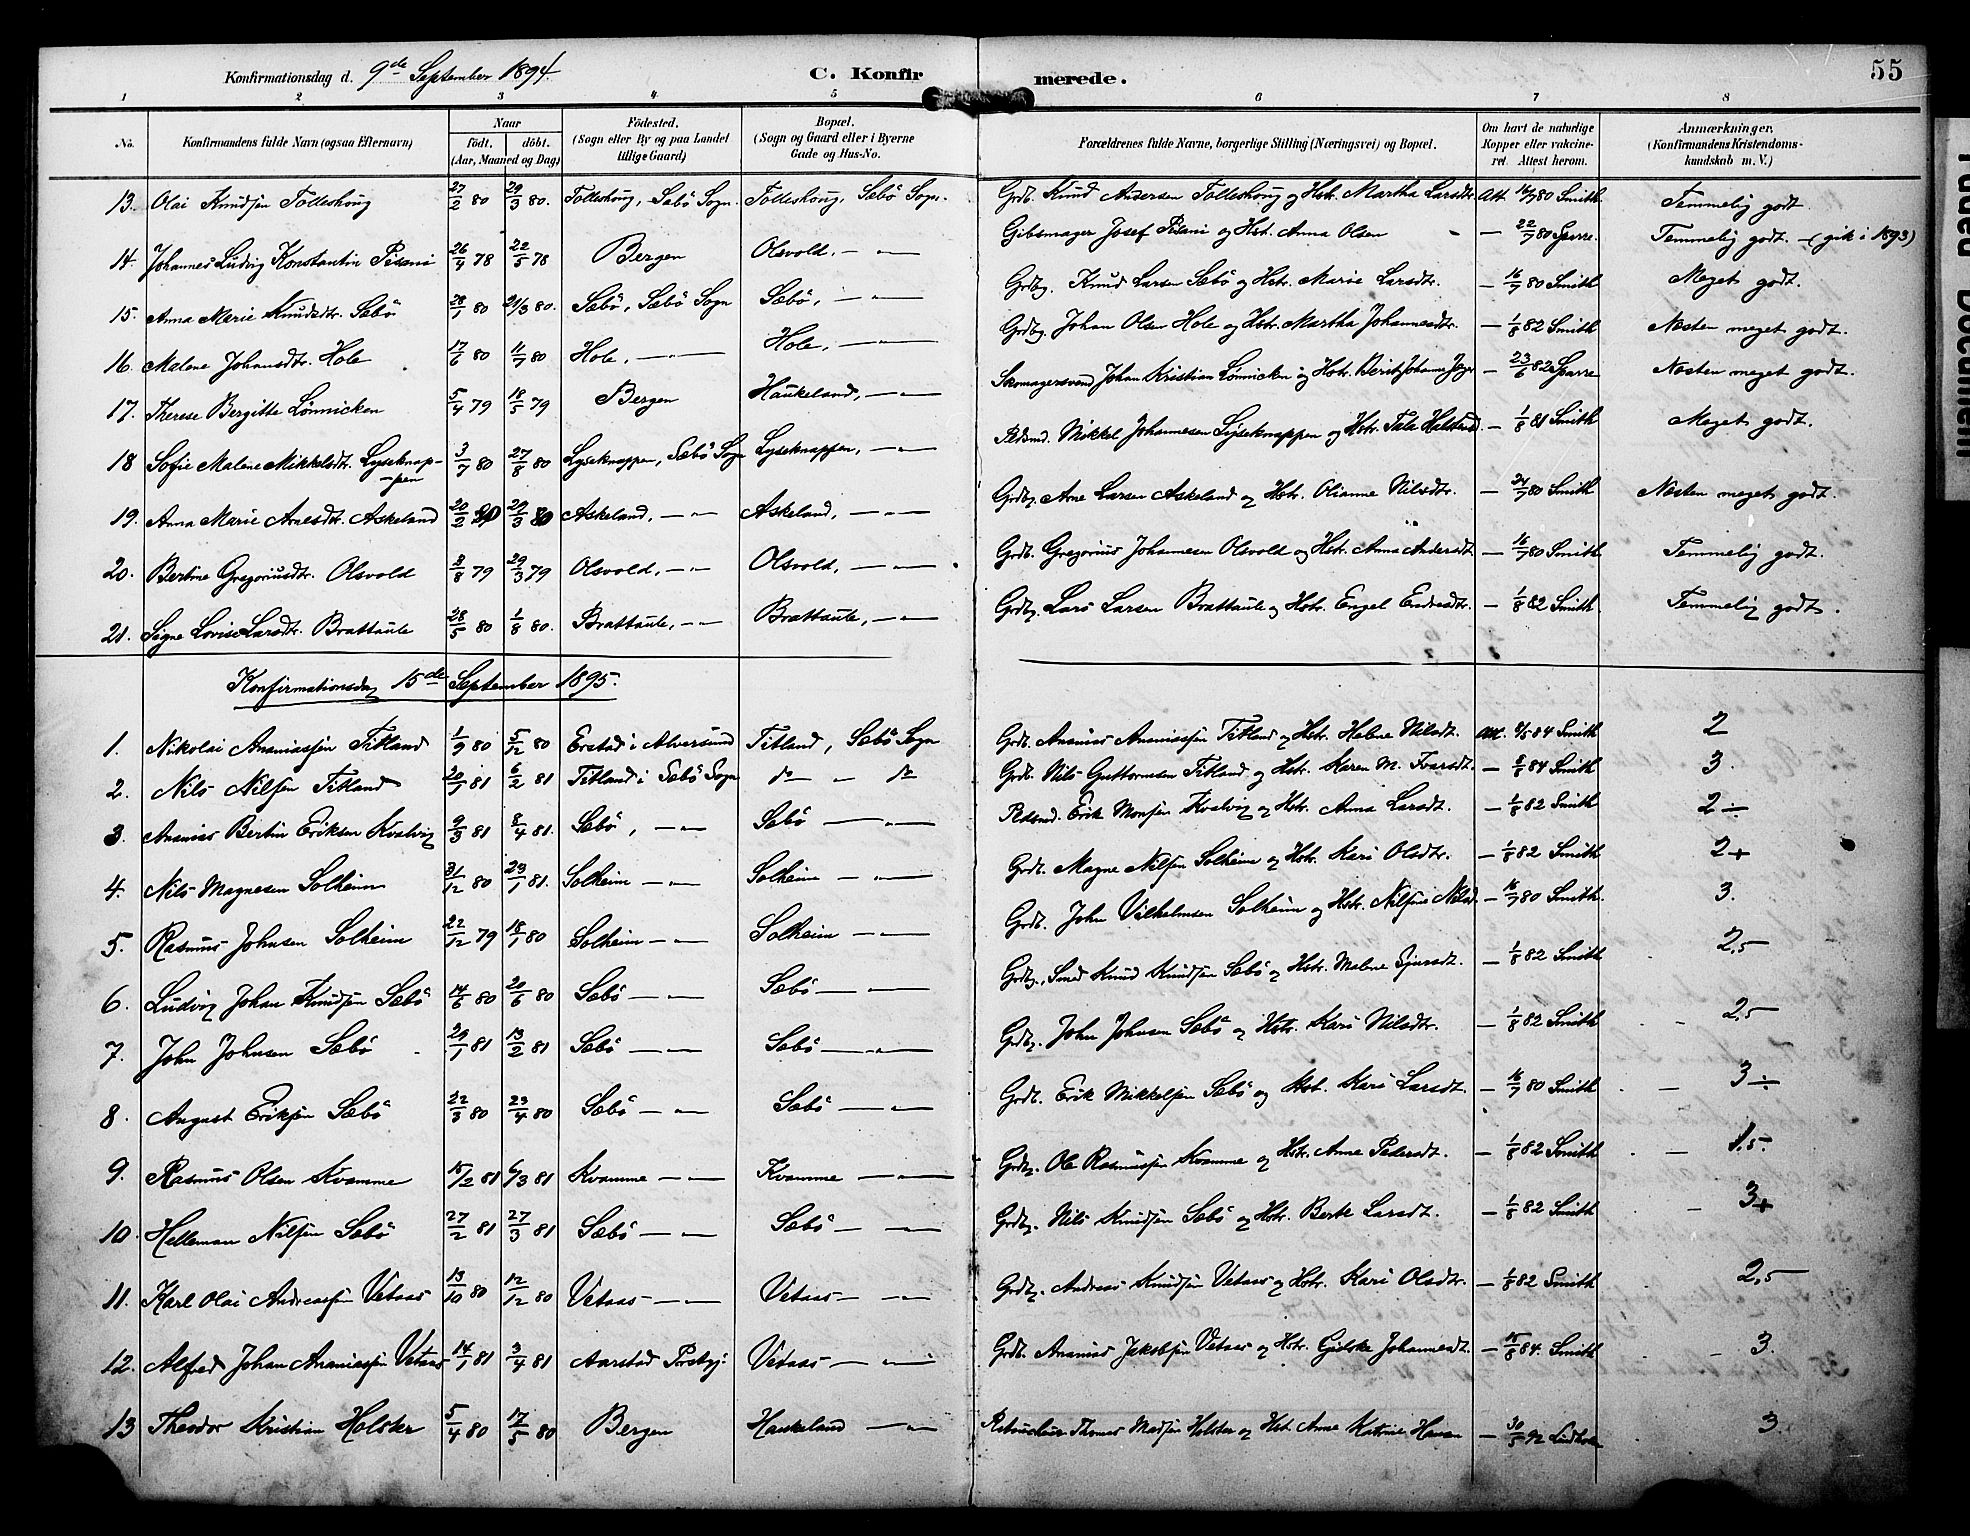 Konfirmationsdag d. 9de September 1894. C. Konfirmerede. 55
1 2 3 4 5 6 7 8
No. Konfirmandens fulde Navn (ogsaa Efternavn) Naar født. døbt. (Aar, Maaned og Dag) Fødested. (Sogn eller By og paa Landet tillige Gaard) Bopæl. (Sogn og Gaard eller i Byerne Gade og Hus-No. Forældrenes fulde Navne, borgerlige Stilling (Næringsvei) og Bopæl. Om havt de naturlige Kopper eller vakcineret. Attest herom. Anmærkninger. (Konfirmandens Kristendomskundskab m. V.)
13. Olai Knudsen Tolleshoug 27/2 80 29/3 80. Tolleshoug, Sæbö Sogn. Tolleshoug, Sæbö Sogn. Grdb. Knud Andersen Tolleshoug og Hstr. Martha Larsdtr. Att. 16/7 80 Smith. Temmelig godt.
14. Johannes Ludvig Konstantin Pisani 26/4 78 22/5 78 Bergen Olsvold. — " — Gibsmager Josef Pisani og Hst. Anna Olsen — 22/7 80 Sparre. Temmelig godt. – (gik i 1893)
15. Anna Marie Knudsdtr. Sæbö 28/1 80 21/3 80. Sæbö, Sæbö Sogn Sæbö, — " — Grdbg. Knud Larsen Sæbö og Hstr. Marie Larsdtr. — 16/7 80 Smith Meget godt.
16. Malene Johansdtr. Hole 17/6 80 11/7 80 Hole, — " — Hole, — " — Grdbg. Johan Olsen Hole og Hstr. Martha Johannesdtr. — 1/8 82 Smith Næsten meget godt.
17. Therese Bergitte Lönnicken 5/4 79 18/5 79 Bergen Haukeland, — " — Skomagersvend Johan Kristian Lönnicken og Hstr. Berit Johanna — 23/6 82 Sparre Næsten meget godt.
18 Sofie Malene Mikkelsdtr. Lyseknappen 3/7 80 27/8 80 Lyseknappen, Sæbö Sogn Lyseknappen, — " — Pldsmd. Mikkel Johannesen Lyseknappen og Hstr. — 1/8 81 Smith Meget godt.
19. Anna Marie Arnesdtr. Askeland 20/2 80 29/3 80 Askeland, — " — Askeland, — " — Grdbg. Arne Larsen Askeland og Hstr. Olianne Nilsdtr. — 24/7 80 Smith Næsten meget godt.
20. Bertine Gregoriusdtr. Olsvold 3/8 79 29/3 79 Olsvold, — " — Olsvold, — " — Grdb. Gregorius Johannesen Olsvold og Hstr. Anna Andersdt. — 16/7 80 Smith Temmelig godt.
21. Signe Lovise Larsdtr. Brattaule 28/5 80 1/8 80. Brattaule, — " — Brattaule, — " — Grdbg. Lars Larsen Brattaule og Hstr. Engel Endresdtr. — 1/8 82 Smith. Temmelig godt.
Konfirmationsdag 15de September 1895.
1. Nikolai Ananiassen Titland 1/9 80 5/12 80 Erstad i Alversund Titland, Sæbö Sogn Grdb. Ananias Ananiassen Titland og Hstr. Helene Nilsdt. Att. 8/5 84 Smith 2
2. Nils Nilsen Titland 20/1 81 6/2 81 Titland i Sæbö Sogn do — do Grdb. Nils Guttormsen Titland og Hstr. Karen M. Ivarsdt. — 8/8 84 Smith 3.
3. Ananias Bertin Eriksen Kvalvig 9/3 81 8/4 81. Sæbö, — " — Sæbö — " — Pldsmd. Erik Monsen Kvalvig og Hstr. Anna Larsdt. — 1/8 82 Smith 2÷
4. Nils Magnesen Solheim 31/12 80 23/1 81. Solheim — " — Solheim — " — Grdb. Magne Nilsen Solheim og Hstr. Kari Olsdtr. — 1/8 82 Smith 2+
5. Rasmus Johnsen Solheim 22/12 79 18/1 80 Solheim — " — Solheim — " — Grdb. John Vilhelmsen Solheim og Hstr. Nilsine Nilsd. — 16/7 80 Smith. 3.
6. Ludvig Johan Knudsen Sæbö 14/6 80 20/6 80 Sæbö — " — Sæbö — " — Grdbg., Smed Knud Knudsen Sæbö og Hstr. Malene Sjursdt. — 1/8 82 Smith 2,5
7. John Johnsen Sæbö 29/1 81 13/2 81 Sæbö — " — Sæbö — " — Grdbg. John Johnsen Sæbö og Hstr. Kari Nilsdtr. — 1/8 82 Smith 2,5
8. August Eriksen Sæbö 22/3 80 23/4 80 Sæbö — " — Sæbö — " — Grdb. Erik Mikkelsen Sæbö og Hst. Kari Larsdt. — 16/7 80 Smith 3÷
9. Rasmus Olsen Kvamme 15/2 81 6/3 81 Kvamme — " — Kvamme — " — Grdbg. Ole Rasmussen Kvamme og Hstr. Anne Pedersdt. — 1/8 82 Smith 1,5
10. Helleman Nilsen Sæbö 27/2 81 27/3 81 Sæbö — " — Sæbö — " — Grdbg. Nils Knudsen Sæbö og Hstr. Berte Larsdt. — 1/8 82 Smith 3+
11. Karl Olai Andreassen Vetaas 13/10 80 12/12 80 Vetaas — " — Vetaas — " — Grdbg. Andreas Knudsen Vetaas og Hstr. Kari Olsdtr. — 1/8 82 Smith 2,5
12. Alfred Johan Ananiassen Vetaas 14/1 81 3/4 81 Aarstad Præstegj. Vetaas — " — Grdb. Ananias Jakobsen Vetaas og Hstr. Gjelske Johannesdt. — 15/8 84. Smith 3.
13 Theodor Kristian Holster 5/4 80 17/5 80 Bergen Haukeland — " — Thomas Madsen Holster og Hst. Anne Katrine Hansen — 30/5 92 3.